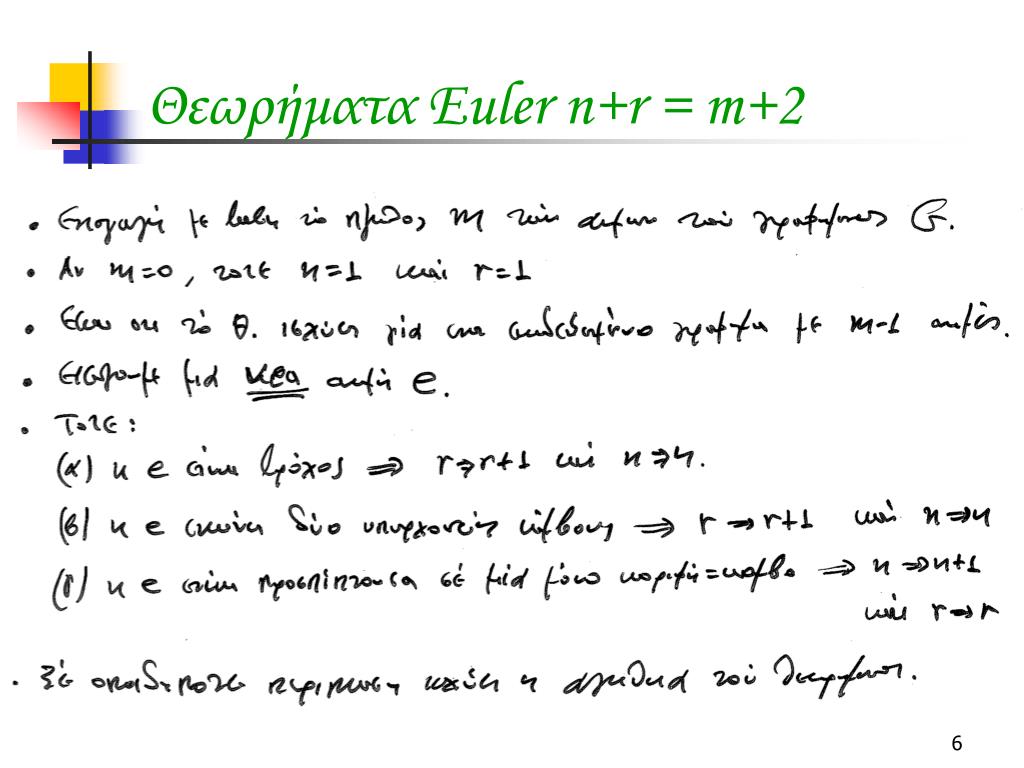 Θεωρήματα Euler n+r = m+2
• Επαγωγή με βάση το πλήθος m των ακμών του γραφήματος G.
• Αν m=0, τότε n=1 και r=1
• Έστω ότι το θ. ισχύει γιά ένα συνδεδεμένο γράφημα με m-1 ακμές.
• Εισάγουμε μιά νέα ακμή e.
• Τότε:
(α) η e είναι βρόχος ⇒ r→r+1 καί n→n.
(β) η e ενώνει δύο υπάρχοντες κόμβους ⇒ r→r+1 καί n→n
(γ) η e είναι προσπίπτουσα σέ μιά μόνο κορυφή=κόμβο ⇒ n→n+1
καί r→r
• Σέ οποιαδήποτε περίπτωση ισχύει η αλήθεια τού θεωρήματος.
6